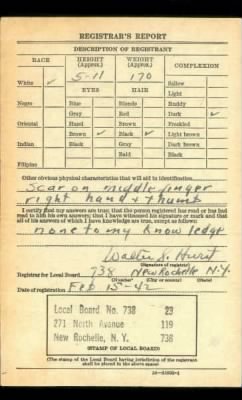 REGISTRAR'S REPORT
DESCRIPTION OF REGISTRANT
RACE
HEIGHT (Approx.)
WEIGHT (Approx.)
COMPLEXION
5-11
170
White ✓
Sallow
EYES
HAIR
Light
Negro
Blue
Blonde
Ruddy
Gray
Red
Dark ✓
Oriental
Hazel
Brown
Freckled
Brown ✓
Black ✓
Light brown
Indian
Black
Gray
Dark brown
Bald
Black
Filipino
Other obvious physical characteristics that will aid in identification
Scar on middle finger
right hand + thumb
I certify that my answers are true; that the person registered has read or has had
read to him his own answers; that I have witnessed his signature or mark and that
all of his answers of which I have knowledge are true, except as follows:
none to my knowledge
Walter S. Hurst
(Signature of registrar)
Registrar for Local Board 738 New Rochelle N.Y.
(Number) (City or county) (State)
Date of registration Feb 15-42
Local Board No. 738 23
271 North Avenue 119
New Rochelle, N. Y. 738
STAMP OF LOCAL BOARD
(The stamp of the Local Board having jurisdiction of the registrant
shall be placed in the above space)